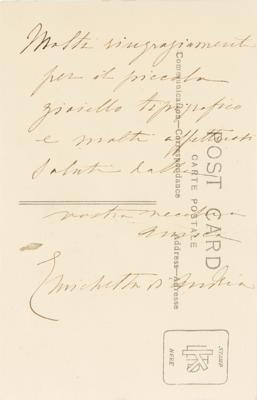 Molti ringraziamenti
per il piccolo
gioiello tipografico
e molti affettuosi
saluti dalla
vostra
amica
Enrichetta
POST CARD
CARTE POSTALE
Communication—Correspondance
Address—Adresse
STAMP
HERE